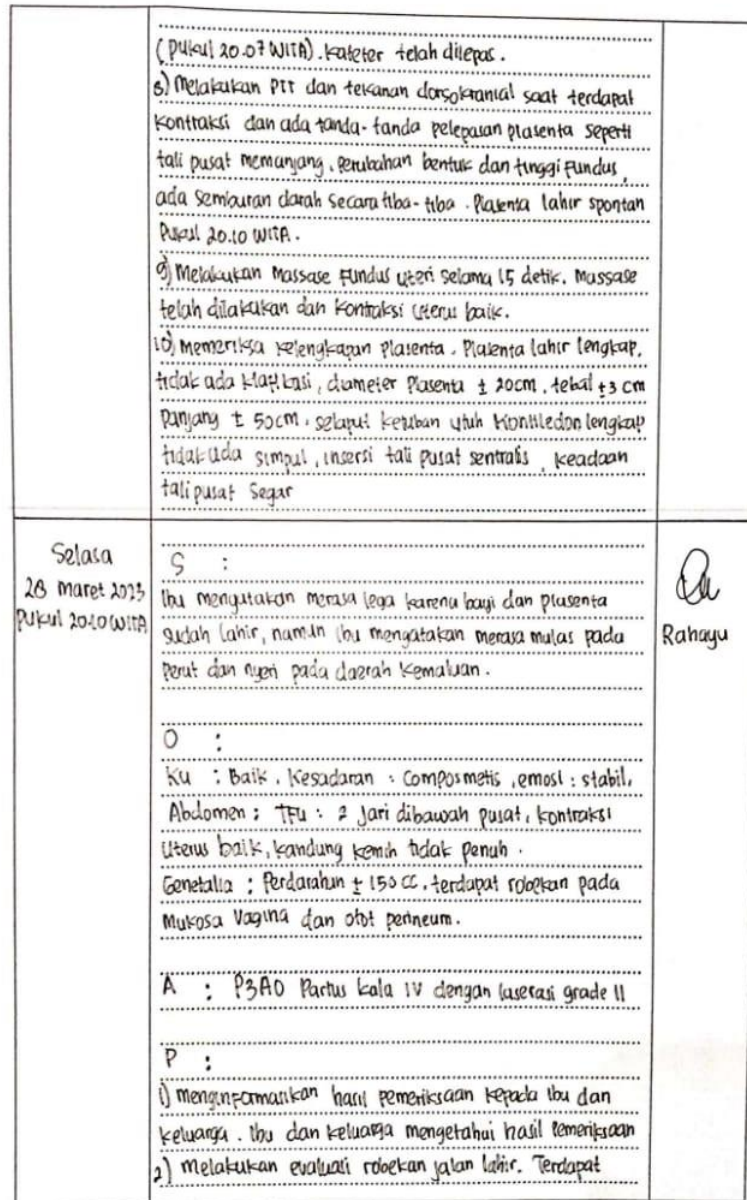 (Pukul 20.07 WITA). Kateter telah dilepas.
8) Melakukan PTT dan tekanan dorsokranial saat terdapat
kontraksi dan ada tanda-tanda pelepasan plasenta seperti
tali pusat memanjang, perubahan bentuk dan tinggi fundus,
ada semburan darah secara tiba-tiba. Plasenta lahir spontan
Pukul 20.10 WITA.
9) Melakukan Massase Fundus uteri selama 15 detik. Massase
telah dilakukan dan kontraksi uterus baik.
10) Memeriksa kelengkapan Plasenta. Plasenta lahir lengkap,
tidak ada klasifikasi, diameter Plasenta ± 20cm, tebal ±3 cm
Panjang ± 50cm, selaput ketuban utuh Kontiledon lengkap
tidak ada simpul, insersi tali pusat sentralis, keadaan
tali pusat Segar
Selasa
28 maret 2023
Pukul 20.10 WITA
S :
Ibu mengatakan merasa lega karena bayi dan plasenta
sudah lahir, namun ibu mengatakan merasa mulas pada
Perut dan nyeri pada daerah kemaluan.
O :
Ku : Baik, Kesadaran : Composmetis, emosi : stabil,
Abdomen : TFU : 2 Jari dibawah pusat, kontraksi
Uterus baik, kandung kemih tidak penuh.
Genetalia : Perdarahan ± 150 cc, terdapat robekan pada
Mukosa Vagina dan otot perineum.
A : P3A0 Partus kala IV dengan laserasi grade II
P :
1) menginformasikan hasil pemeriksaan kepada ibu dan
keluarga. Ibu dan keluarga mengetahui hasil pemeriksaan
2) Melakukan evaluasi robekan jalan lahir. Terdapat
Rahayu